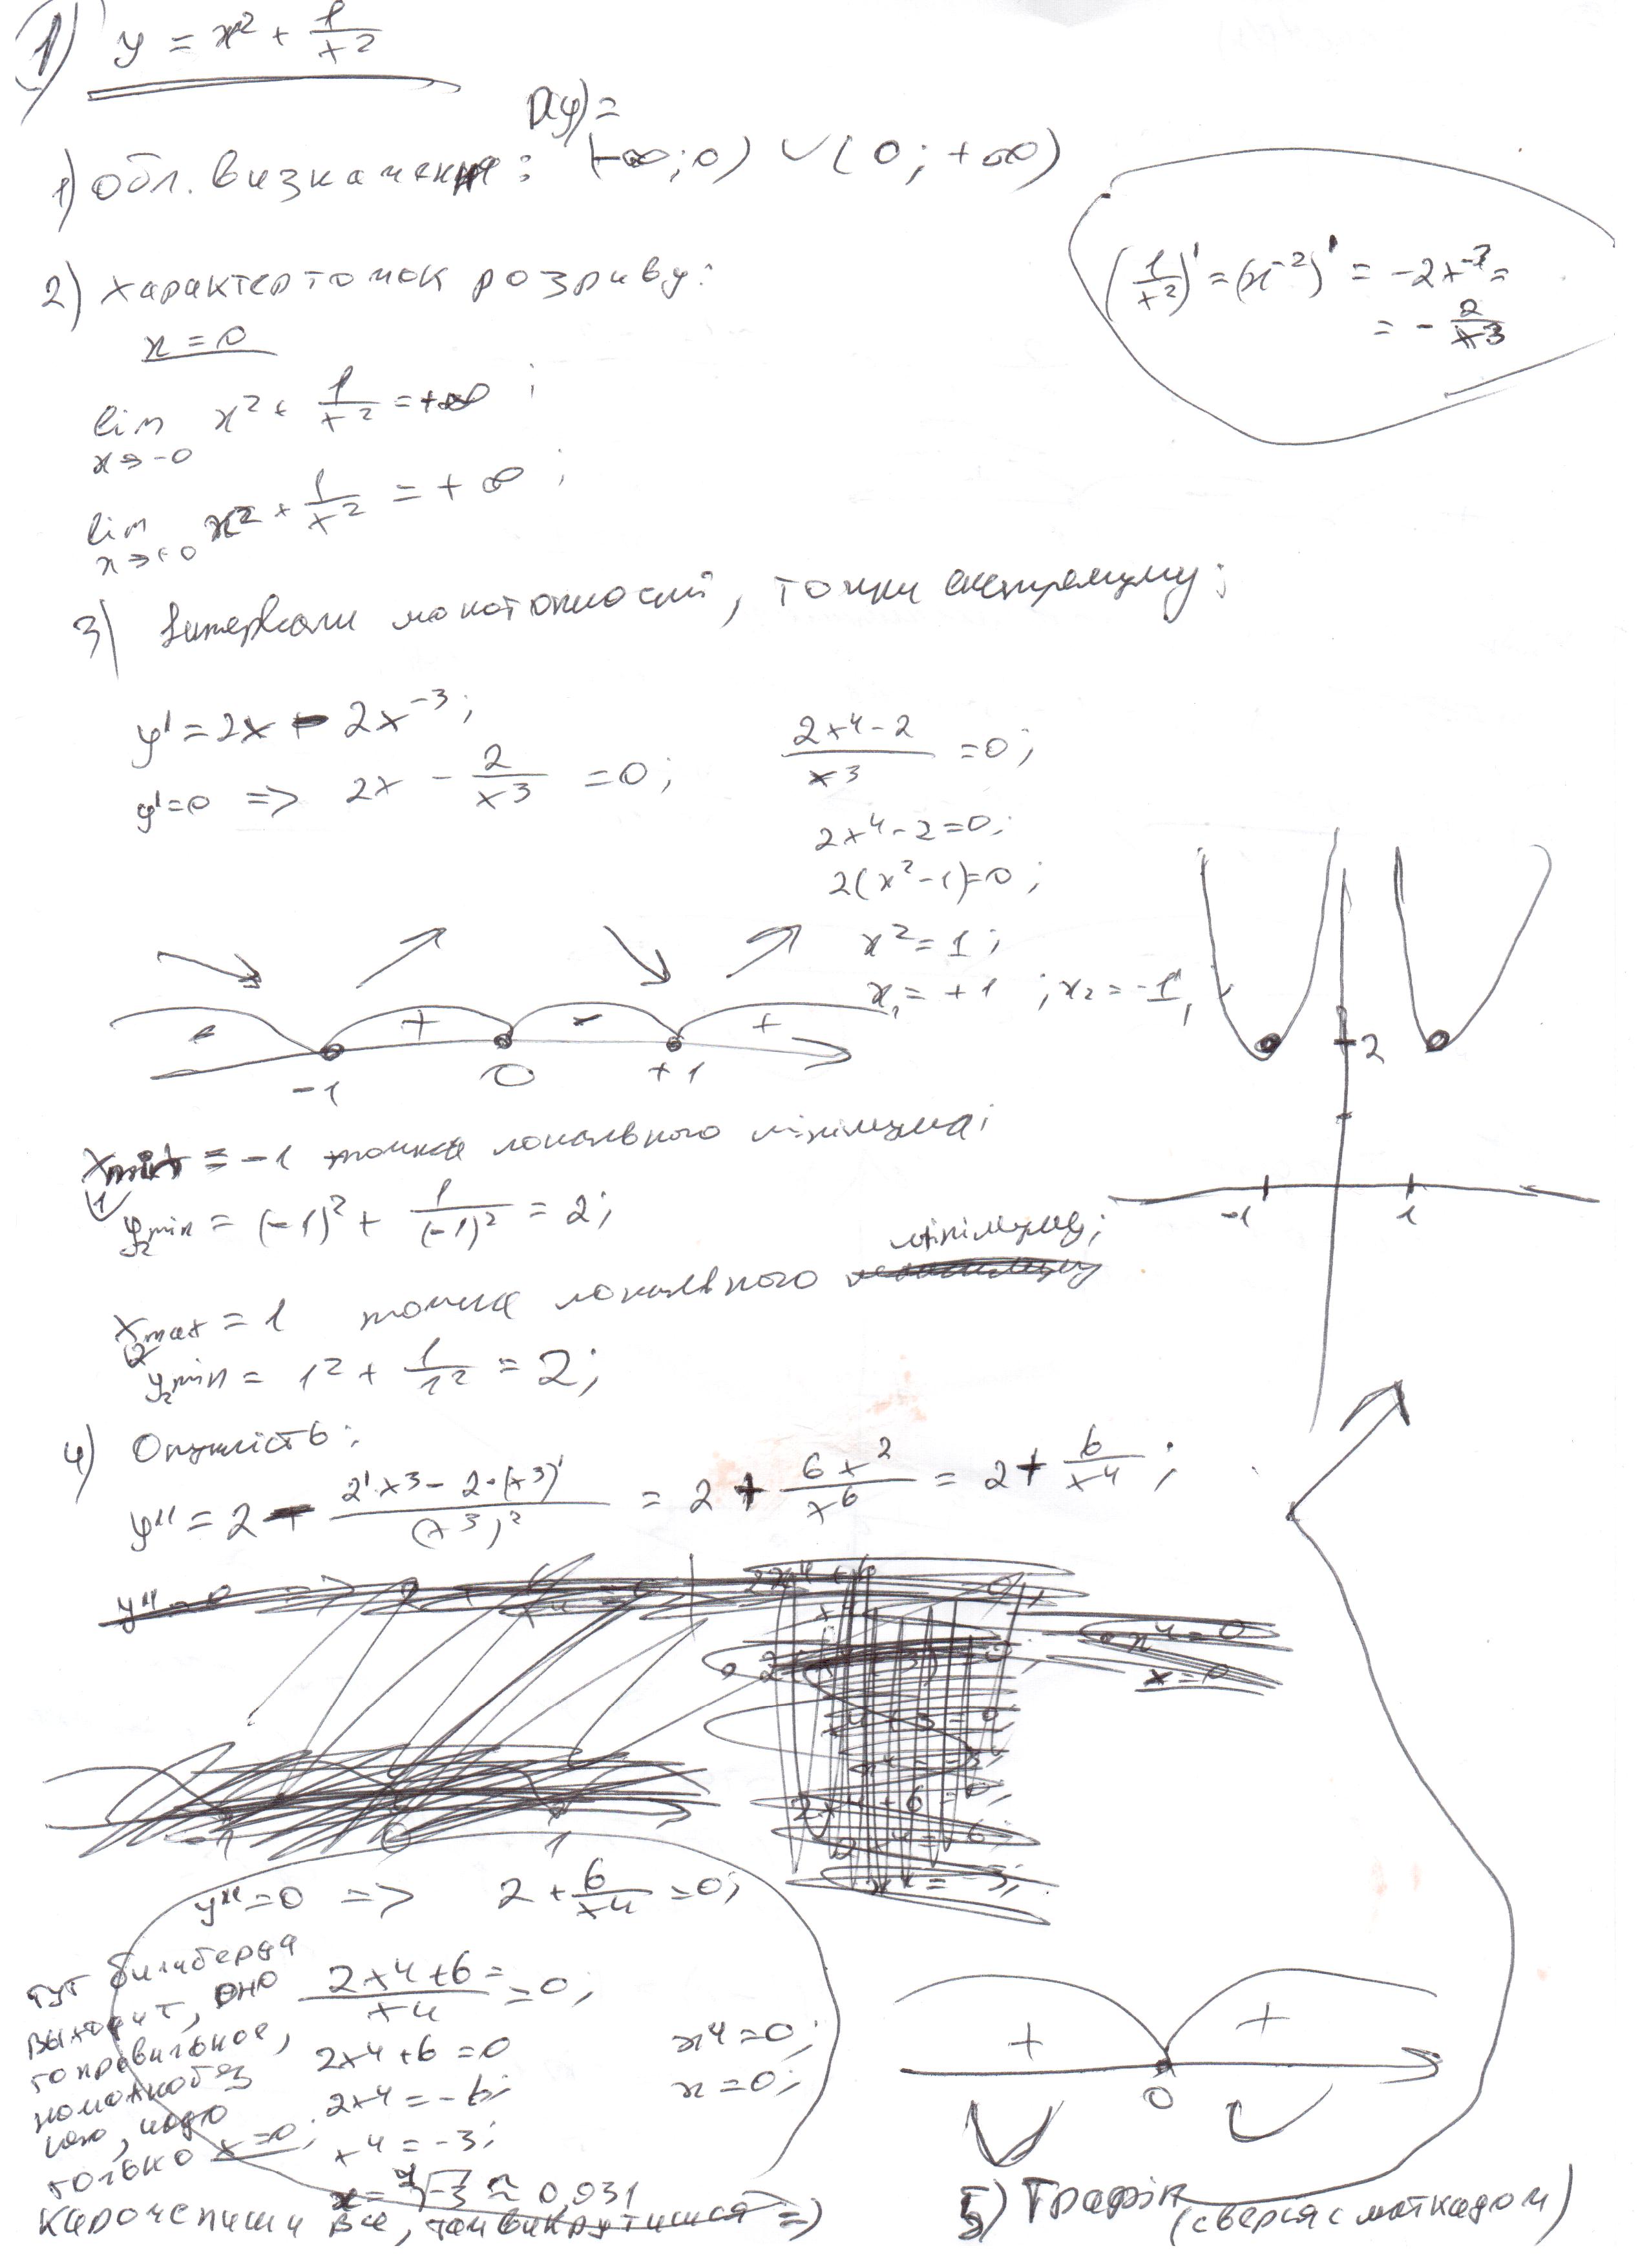 1) y = x² + 1/x²
D(y) =
1) обл. визначення: (-∞; 0) ∪ (0; +∞)
(1/x²)' = (x⁻²)' = -2x⁻³ =
= - 2/x³
2) характер точок розриву:
x = 0
lim x² + 1/x² = +∞ ;
x→-0
lim x² + 1/x² = + ∞ ;
x→+0
3) Інтервали монотонності, точки екстремуму;
y' = 2x - 2x⁻³;
y' = 0 => 2x - 2/x³ = 0;
(2x⁴ - 2)/x³ = 0;
2x⁴ - 2 = 0;
2(x² - 1) = 0;
x² = 1;
x₁ = +1 ; x₂ = -1;
- + - +
-1 0 +1
2
-1 1
xmin = -1 точка локального мінімума;
1
y min = (-1)² + 1/(-1)² = 2;
2
xmax = 1 точка локального мінімуму;
2
y₂min = 1² + 1/1² = 2;
4) Опуклість;
y'' = 2 - (2'·x³ - 2·(x³)')/(x³)² = 2 + 6x²/x⁶ = 2 + 6/x⁴;
x⁴ = 0
x = 0
-1 0 1
y'' = 0 => 2 + 6/x⁴ = 0;
(2x⁴ + 6 =)/x⁴ = 0;
2x⁴ + 6 = 0
2x⁴ = -6;
x⁴ = -3;
x = ⁴√-3 ≈ 0,031
x⁴ = 0;
x = 0;
тут билиберда
выходит, оно
то правильное,
но можно без
надо
только x = 0;
Кароче пиши все, там викрутишся =)
+ +
0
5) Графік (сверся с маткадом)